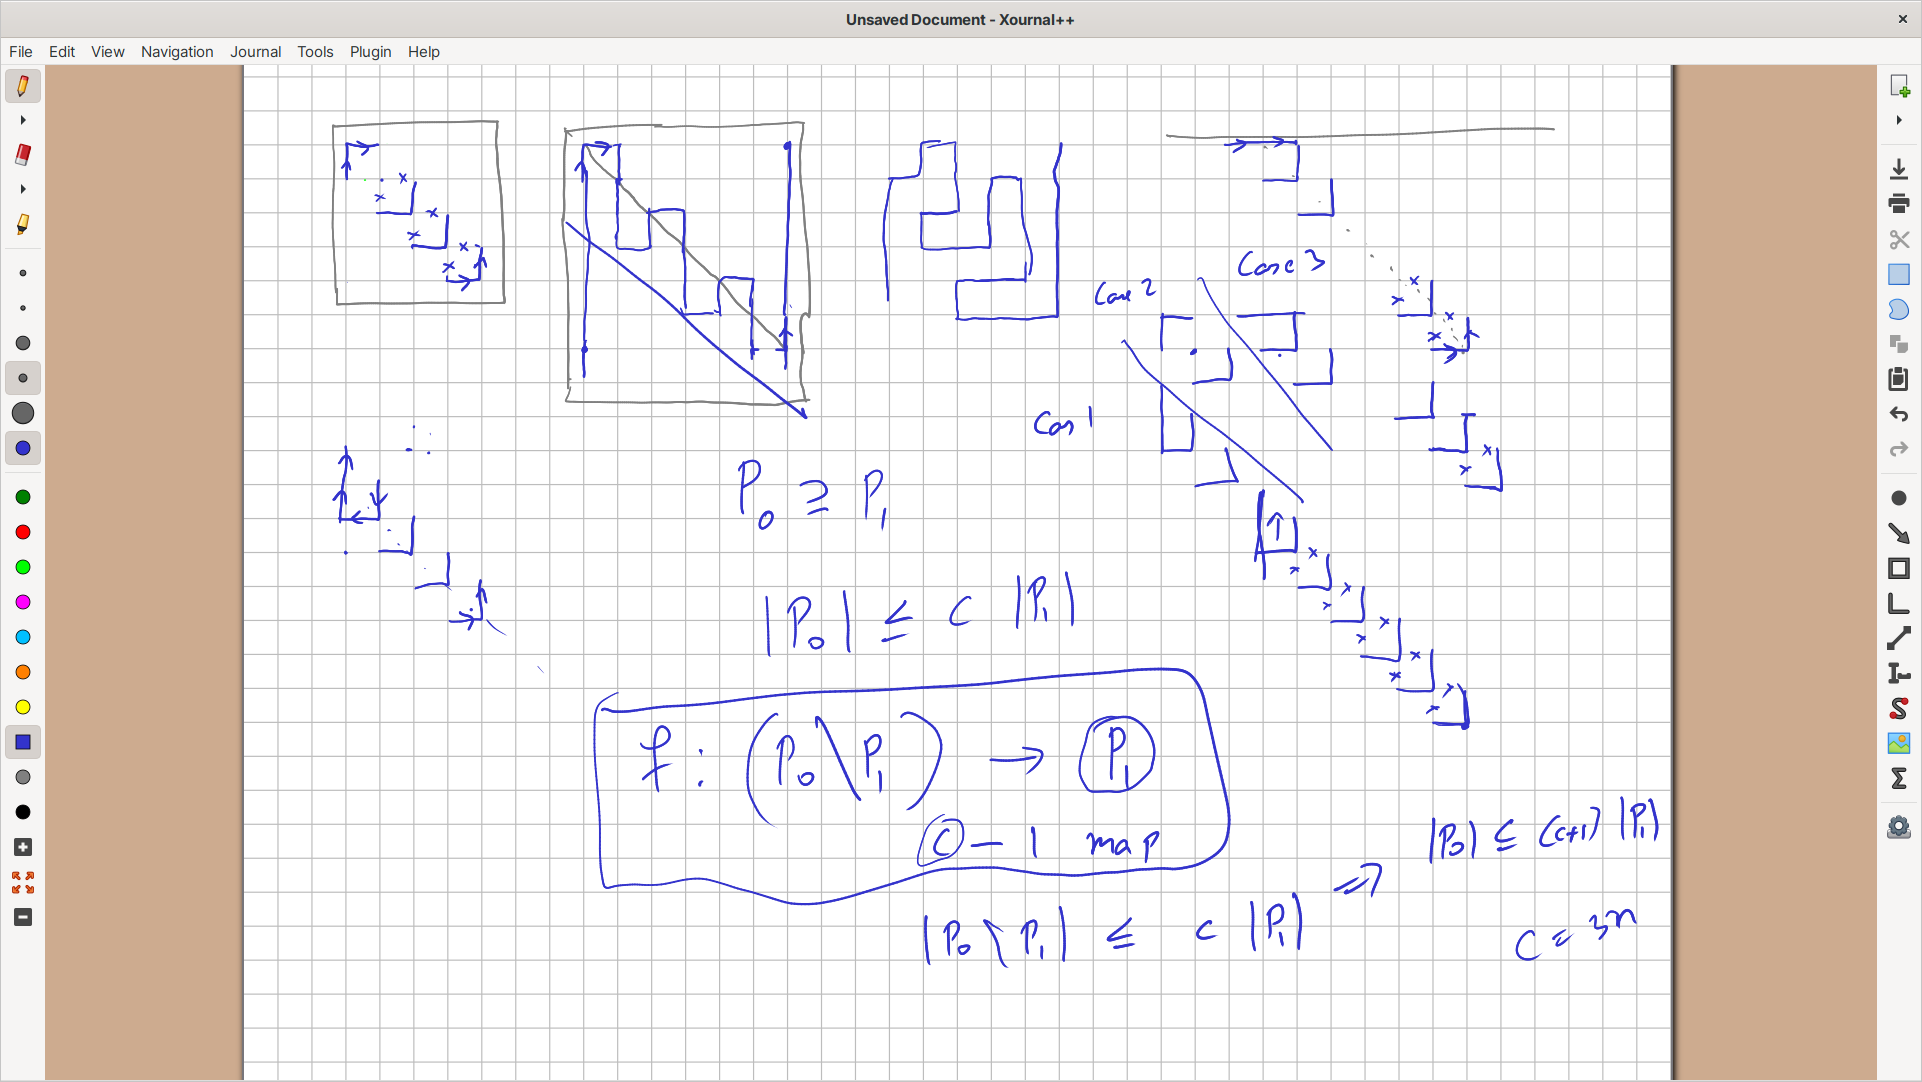 Unsaved Document - Xournal++
File Edit View Navigation Journal Tools Plugin Help
Case 3
Case 2
Cas 1
P₀ ⊇ P₁
|P₀| ≤ C |P₁|
f : (P₀ \ P₁) → P₁
C − 1 map
|P₀ \ P₁| ≤ C |P₁| ⇒ |P₀| ≤ (C+1) |P₁|
C = 3n